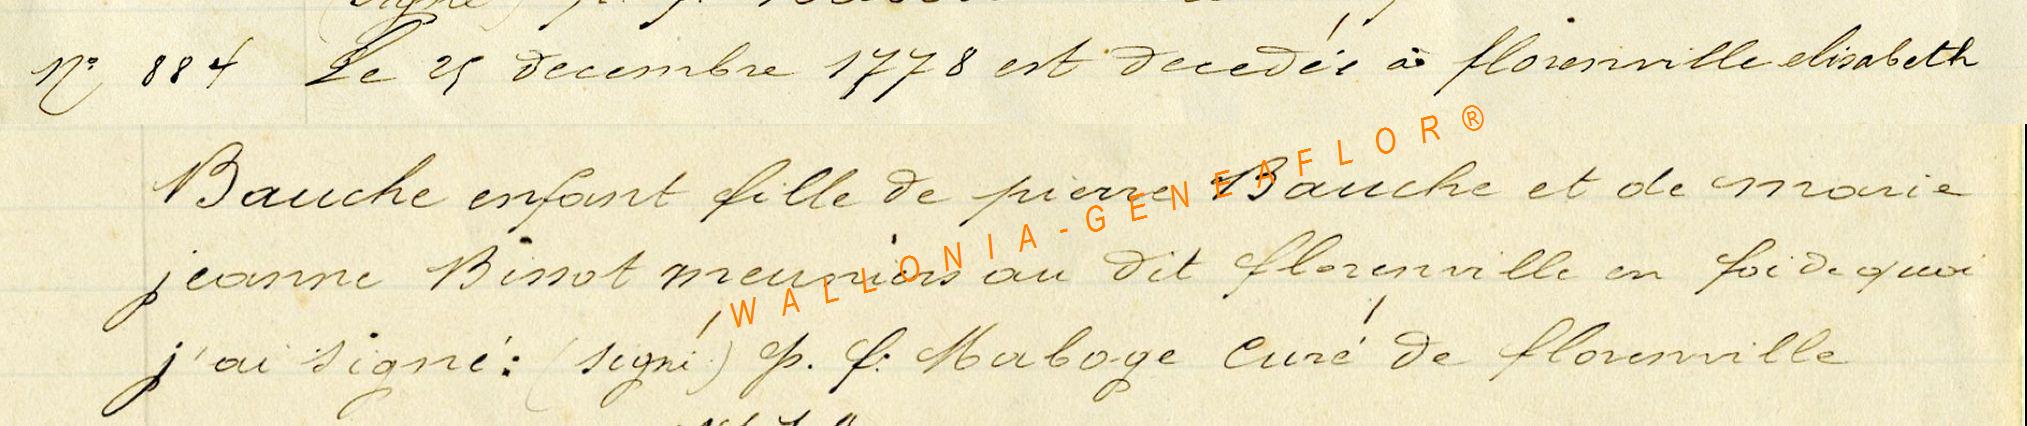 (signé) p. f.
N° 884 Le 25 decembre 1778 est decedée à florenville elisabeth
Bauche enfant fille de pierre Bauche et de marie
jeanne Binot meuniers au dit florenville en foi de quoi
j'ai signé: (signé) p. f. Maboge Curé de florenville
WALLONIA-GENEAFLOR®